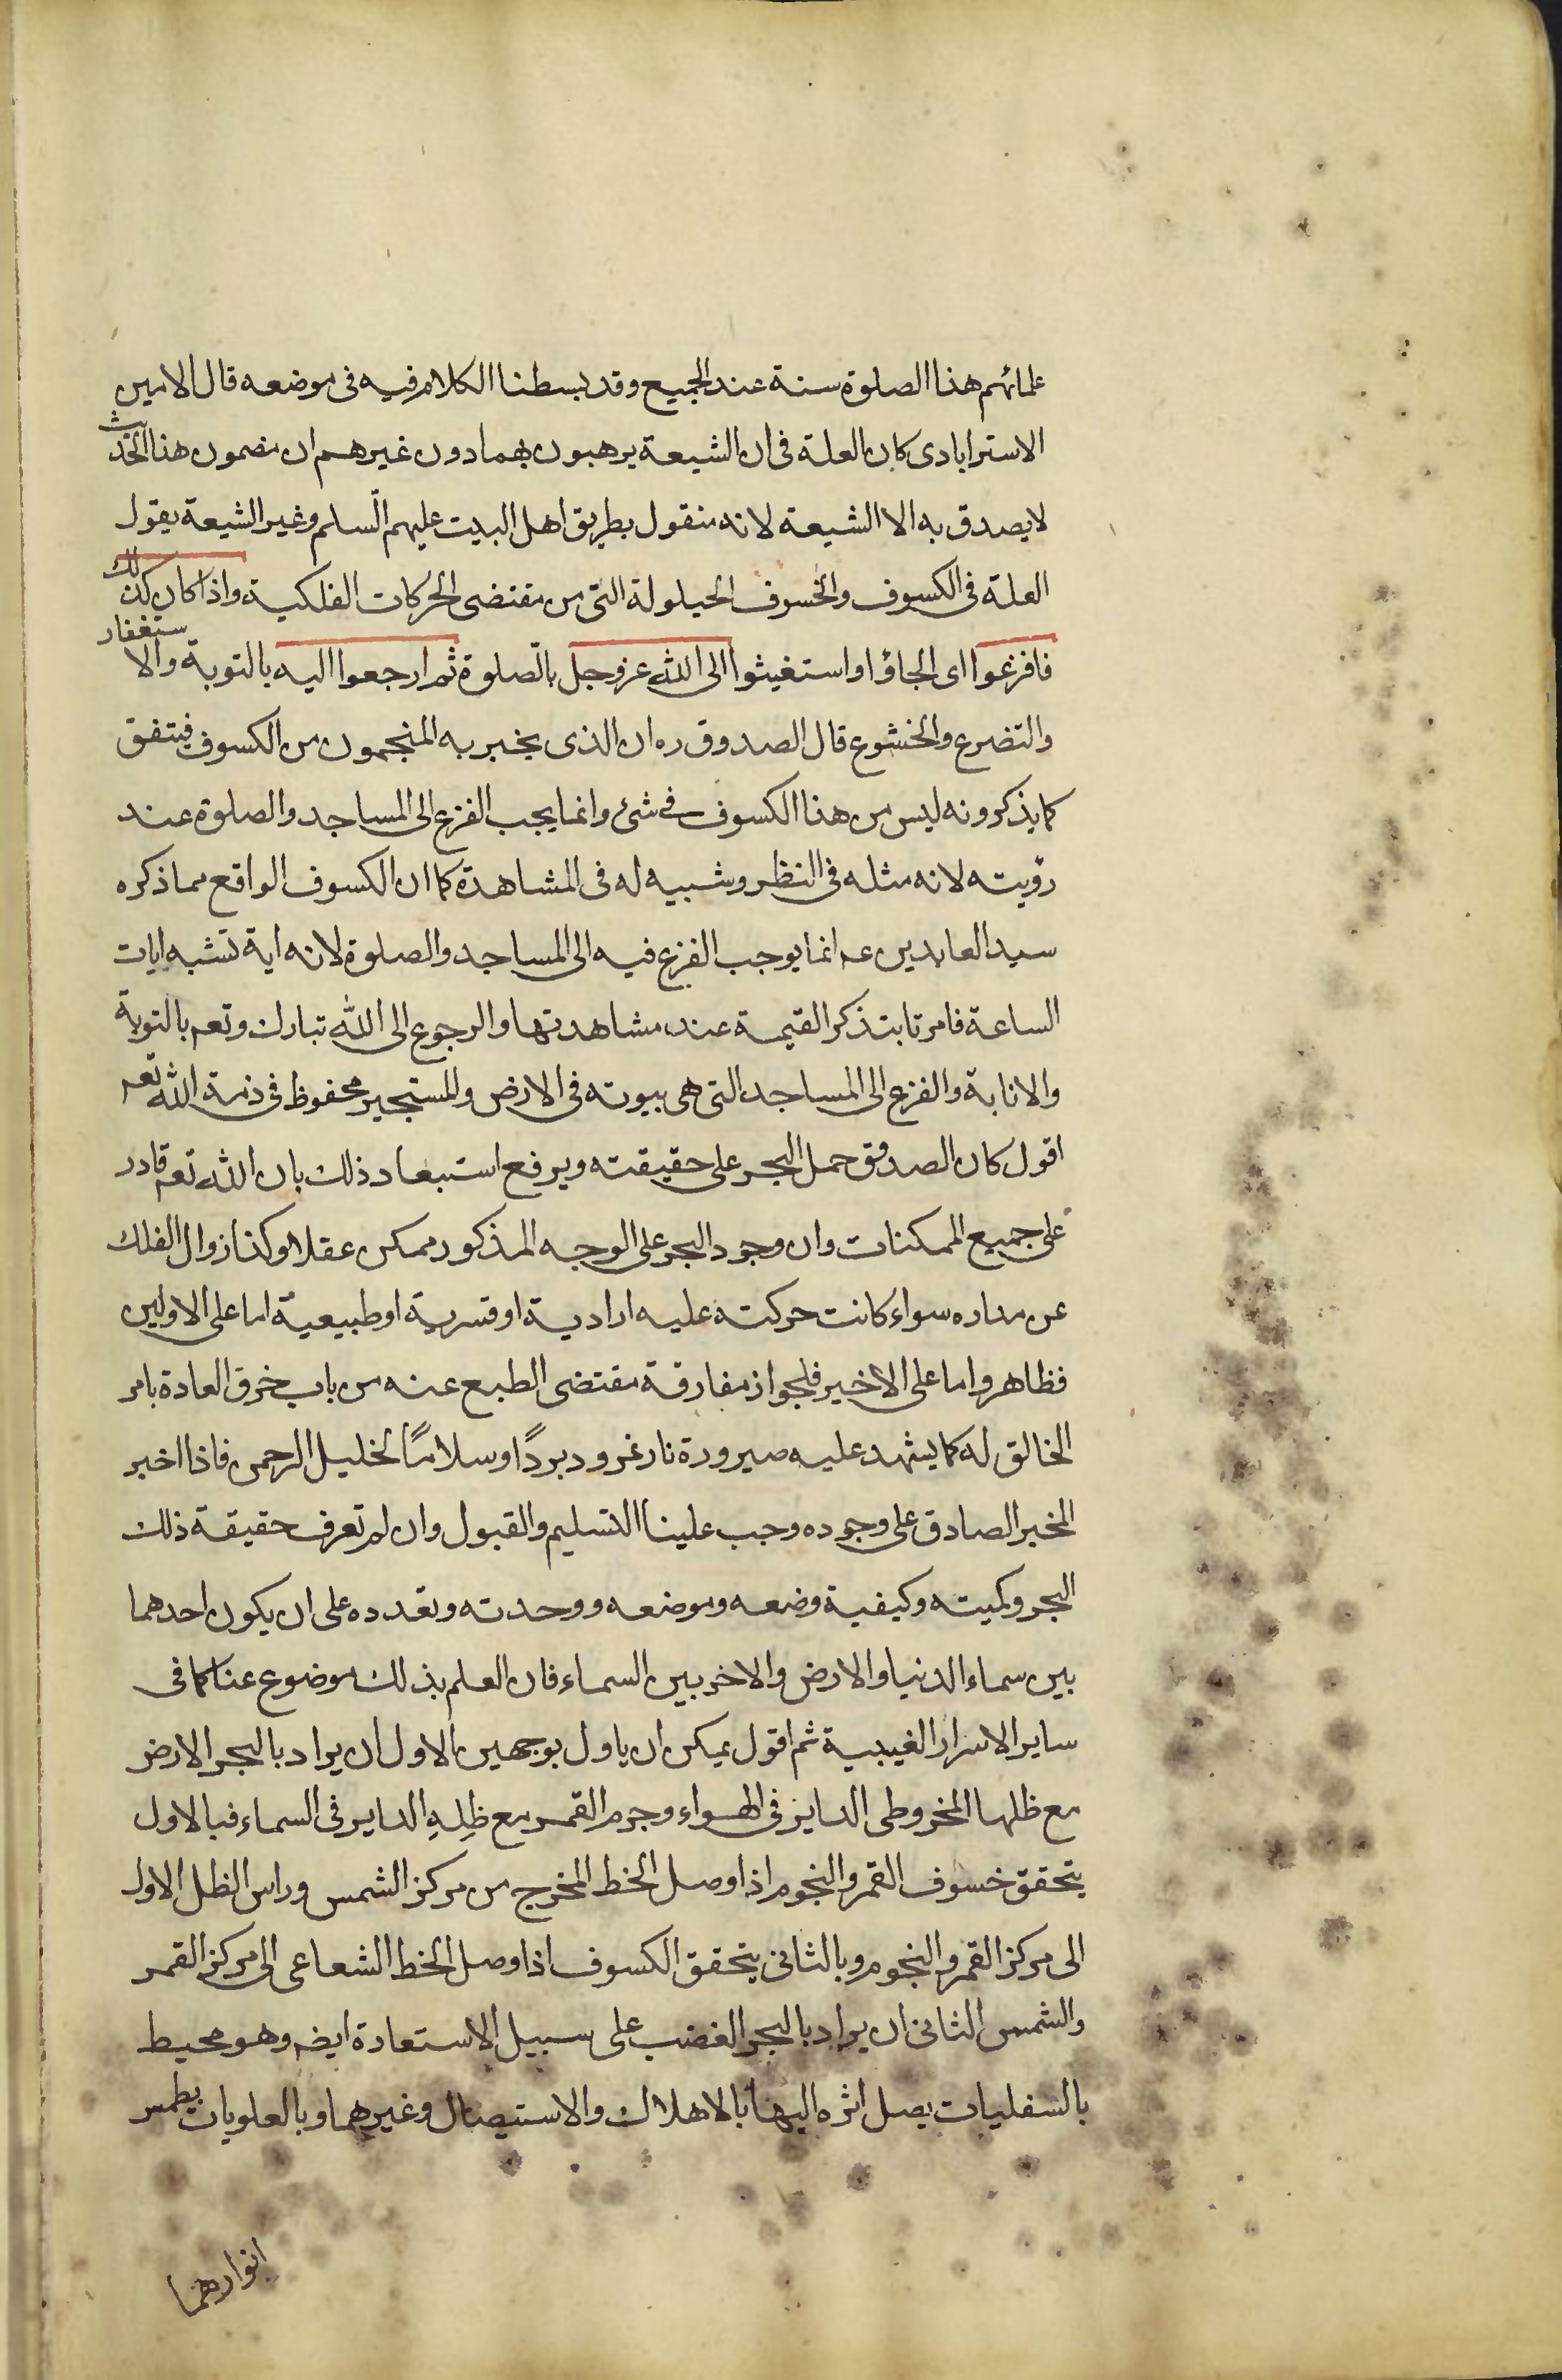 علمائهم هذا الصلوة سنة عند الجميع وقد بسطنا الكلام فيه فى موضعه قال الامين
الاسترابادى كان العلة فى ان الشيعة يرهبون بهما دون غيرهم ان مضمون هذا الحديث
لا يصدق به الا الشيعة لانه منقول بطريق اهل البيت عليهم السلم وغير الشيعة يقول
العلة فى الكسوف والخسوف الحيلولة التى من مقتضى الحركات الفلكية واذا كان كذلك
فافزعوا اى الجاؤا واستغيثوا الى الله عز وجل بالصلوة ثم ارجعوا اليه بالتوبة والاستغفار
والتضرع والخشوع قال الصدوق ره ان الذى يخبر به المنجمون من الكسوف فيتفق
كما يذكرونه ليس من هذا الكسوف فى شئ وانما يجب الفزع الى المساجد والصلوة عند
رؤيته لانه مثله فى النظر وشبيه له فى المشاهدة كما ان الكسوف الواقع مما ذكره
سيد العابدين عم انما يوجب الفزع فيه الى المساجد والصلوة لانه اية تشبه ايات
الساعة فامرنا بتذكر القيمة عند مشاهدتها والرجوع الى الله تبارك وتعم بالتوبة
والانابة والفزع الى المساجد التى هى بيوته فى الارض والمستجير محفوظ فى ذمة الله تعم
اقول كان الصدوق حمل البحر على حقيقته ويرفع استبعاد ذلك بان الله تعم قادر
على جميع الممكنات وان وجود البحر على الوجه المذكور ممكن عقلا وكذا زوال الفلك
عن مداره سواء كانت حركته عليه ارادية او قسرية او طبيعية اما على الاولين
فظاهر واما على الاخير فلجواز مفارقة مقتضى الطبع عنه من باب خرق العادة بامر
الخالق له كما يشهد عليه صيرورة نار نمرود بردًا وسلامًا لخليل الرحمن فاذا اخبر
المخبر الصادق على وجوده وجب علينا التسليم والقبول وان لم تعرف حقيقة ذلك
البحر وكميته وكيفية وضعه وموضعه ووحدته وتعدده على ان يكون احدهما
بين سماء الدنيا والارض والاخر بين السماء فان العلم بذلك موضوع عنا كما فى
ساير الاسرار الغيبية ثم اقول يمكن ان ياول بوجهين الاول ان يراد بالبحر الارض
مع ظلها المخروطى الداير فى الهواء وجرم القمر مع ظله الداير فى السماء فبالاول
يتحقق خسوف القمر والنجوم اذا وصل الخط المخرج من مركز الشمس وراس الظل الاول
الى مركز القمر والنجوم وبالثانى يتحقق الكسوف اذا وصل الخط الشعاعى الى مركز القمر
والشمس الثانى ان يراد بالبحر الغضب على سبيل الاستعارة ايضه وهو محيط
بالسفليات يصل اثره اليها بالاهلاك والاستيصال وغيرهما وبالعلويات يطمس
انوارهما